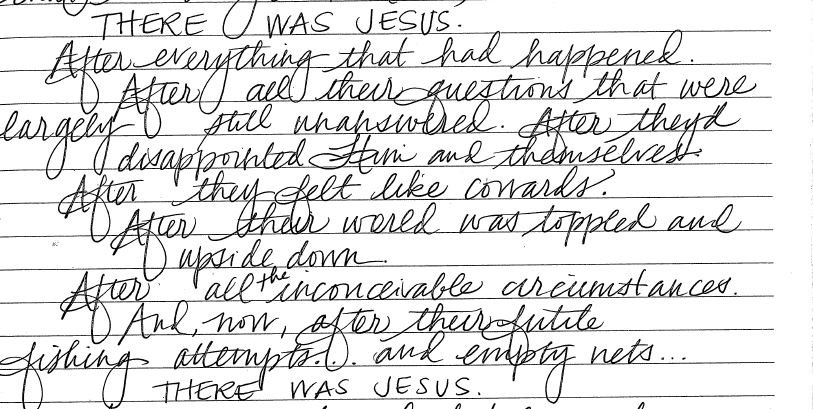 THERE WAS JESUS.
After everything that had happened.
After all their questions that were
largely still unanswered. After they'd
disappointed Him and themselves.
After they felt like cowards.
After their world was toppled and
upside down.
After all the inconceivable circumstances.
And, now, after their futile
fishing attempts... and empty nets...
THERE WAS JESUS.